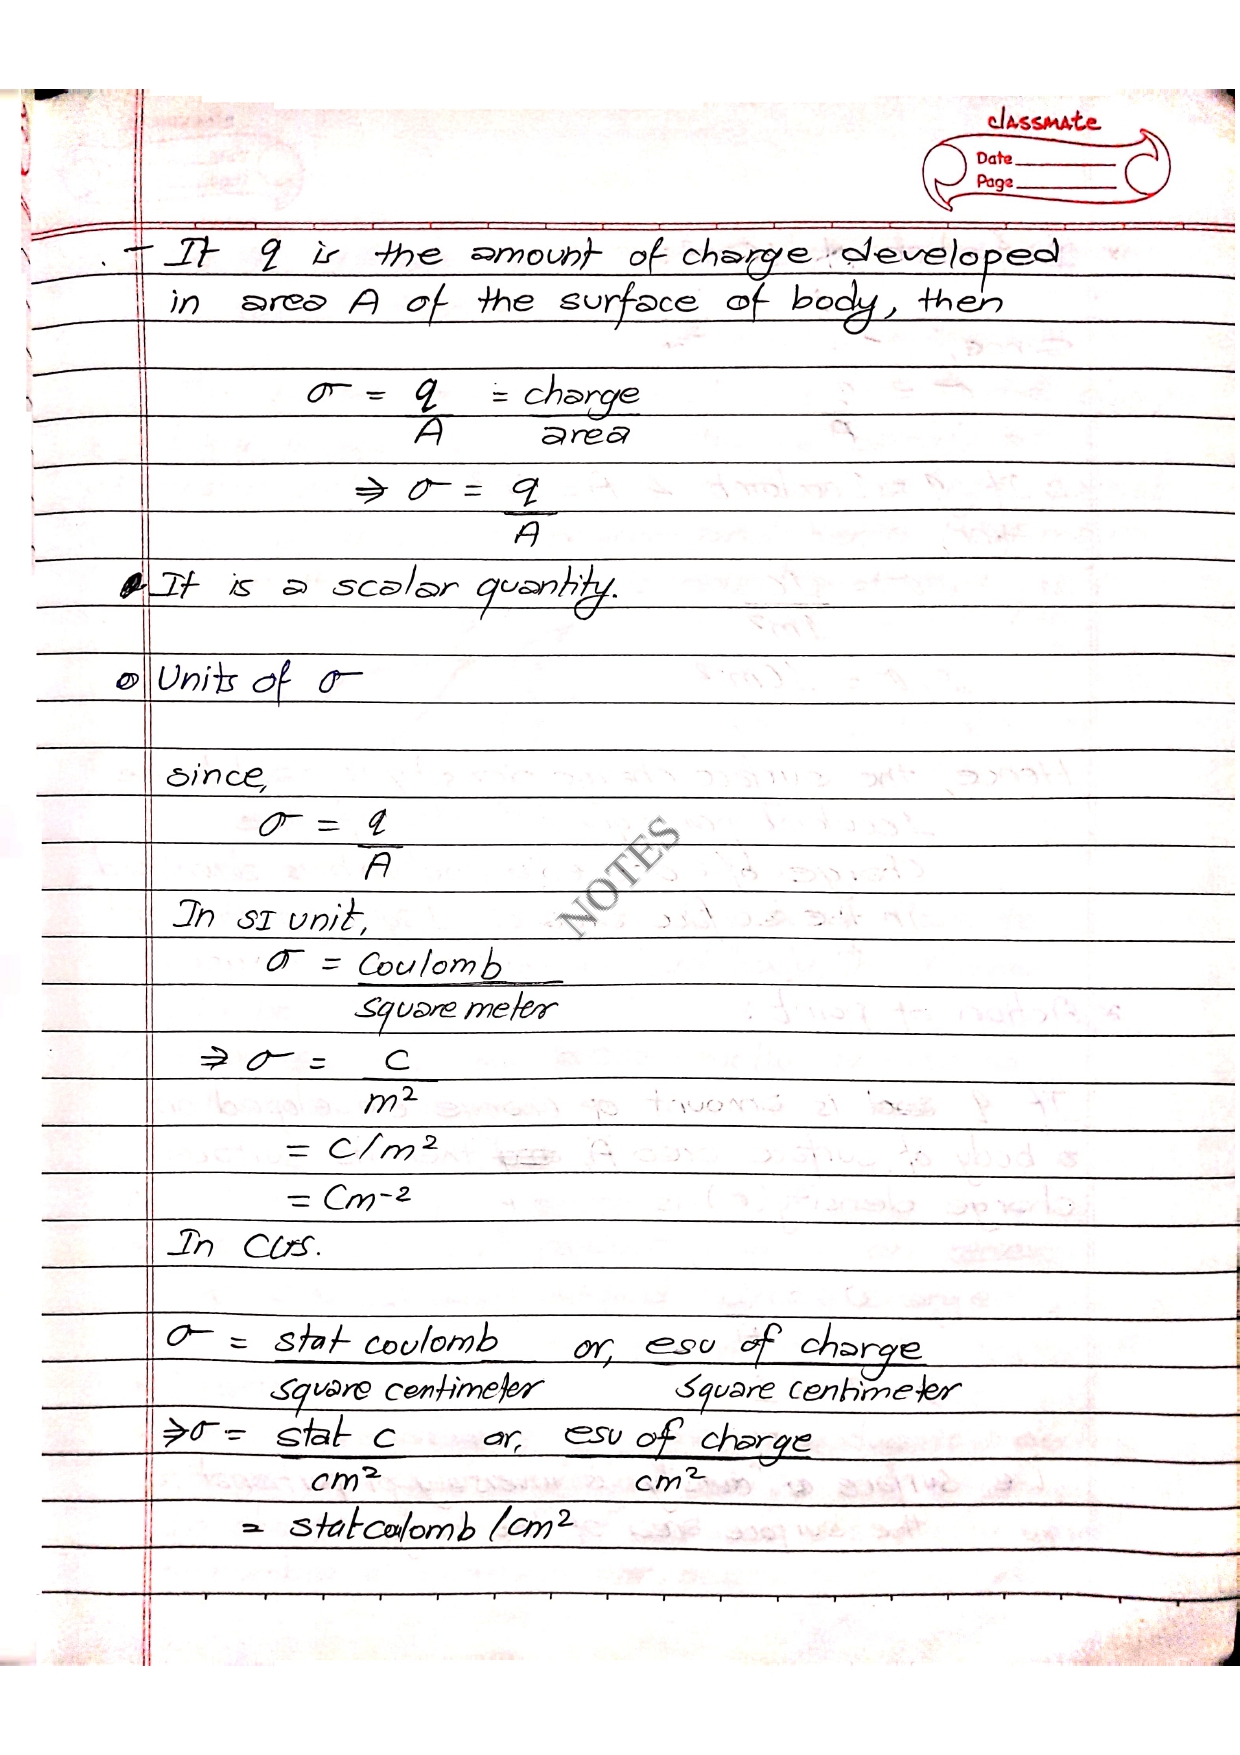 classmate
Date
Page
- If q is the amount of charge developed
in area A of the surface of body, then
σ = q/A = charge/area
⇒ σ = q/A
It is a scalar quantity.
Units of σ
since,
σ = q/A
NOTES
In SI unit,
σ = Coulomb/square meter
⇒ σ = C/m²
= C/m²
= Cm-²
In CGS.
σ = stat coulomb/square centimeter or, esu of charge/square centimeter
⇒ σ = stat C/cm² or, esu of charge/cm²
= statcoulomb/cm²